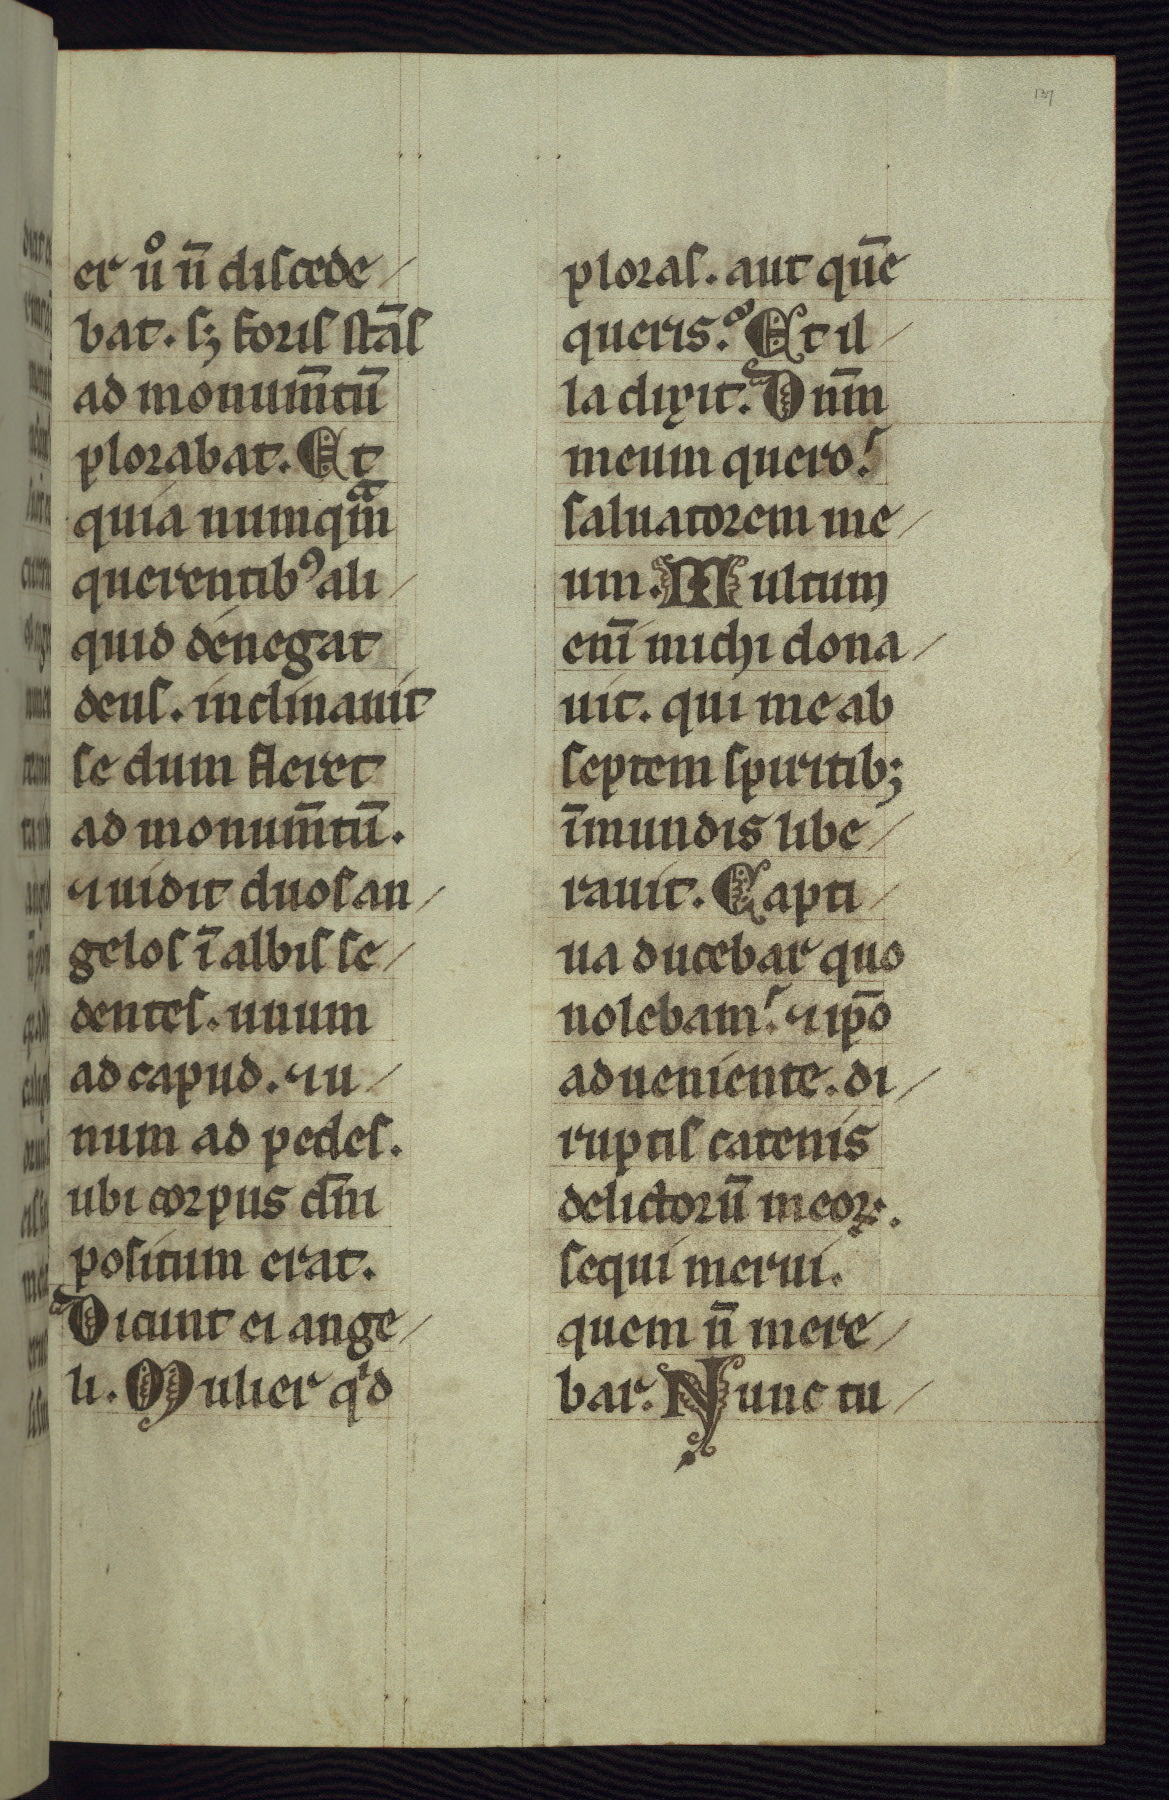 137
er ů n̄ discede/
bat. sꝫ foris stās
ad monum̄tū
plorabat. Et
quia numqᵃ̄m
querentibꝰ ali/
quid denegat
deus. inclinauit
se dum fleret
ad monum̄tū.
⁊ uidit duos an/
gelos ī albis se/
dentes. unum
ad capud. ⁊ u/
num ad pedes.
ubi corpus dn̄i
positum erat.
Dicunt ei ange/
li. Mulier qͥd
ploras. aut quē
queris. Et il/
la dixit. Dnm̄
meum quero.
saluatorem me/
um. Multum
eni̅ michi dona/
uit. qui me ab
septem spiritibꝫ
īmundis libe/
rauit. Capti/
ua ducebar quo
nolebam. ⁊ ip̄o
adueniente. di/
ruptis catenis
delictorū meoꝝ.
sequi merui.
quem n̄ mere/
bar. Nunc tu/